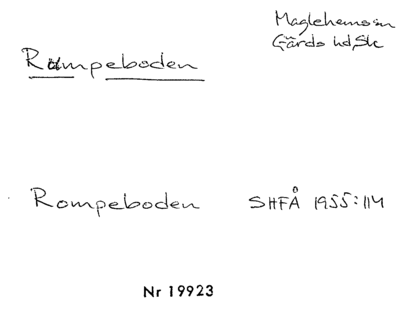 Maglehems sn
Gärds hd, Sk
Rumpeboden
Rompeboden SHFÅ 1955:114
Nr 19923